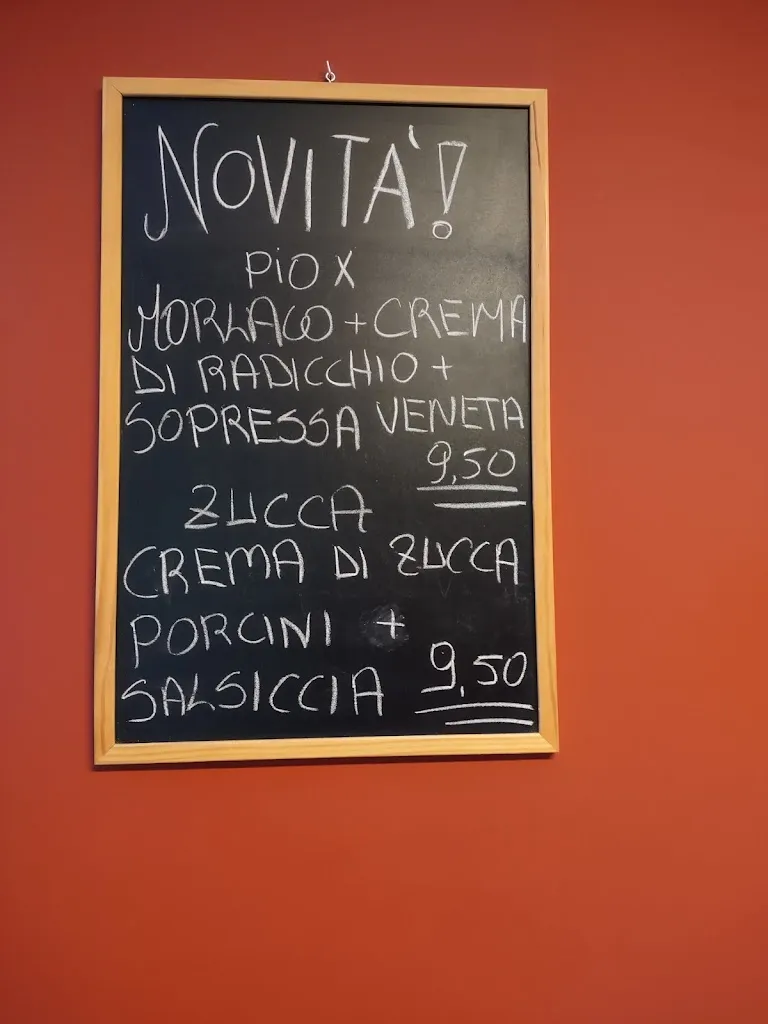 NOVITA'!
PIO X
MORLACO + CREMA
DI RADICCHIO +
SOPRESSA VENETA
9,50
ZUCCA
CREMA DI ZUCCA
PORCINI +
SALSICCIA 9,50